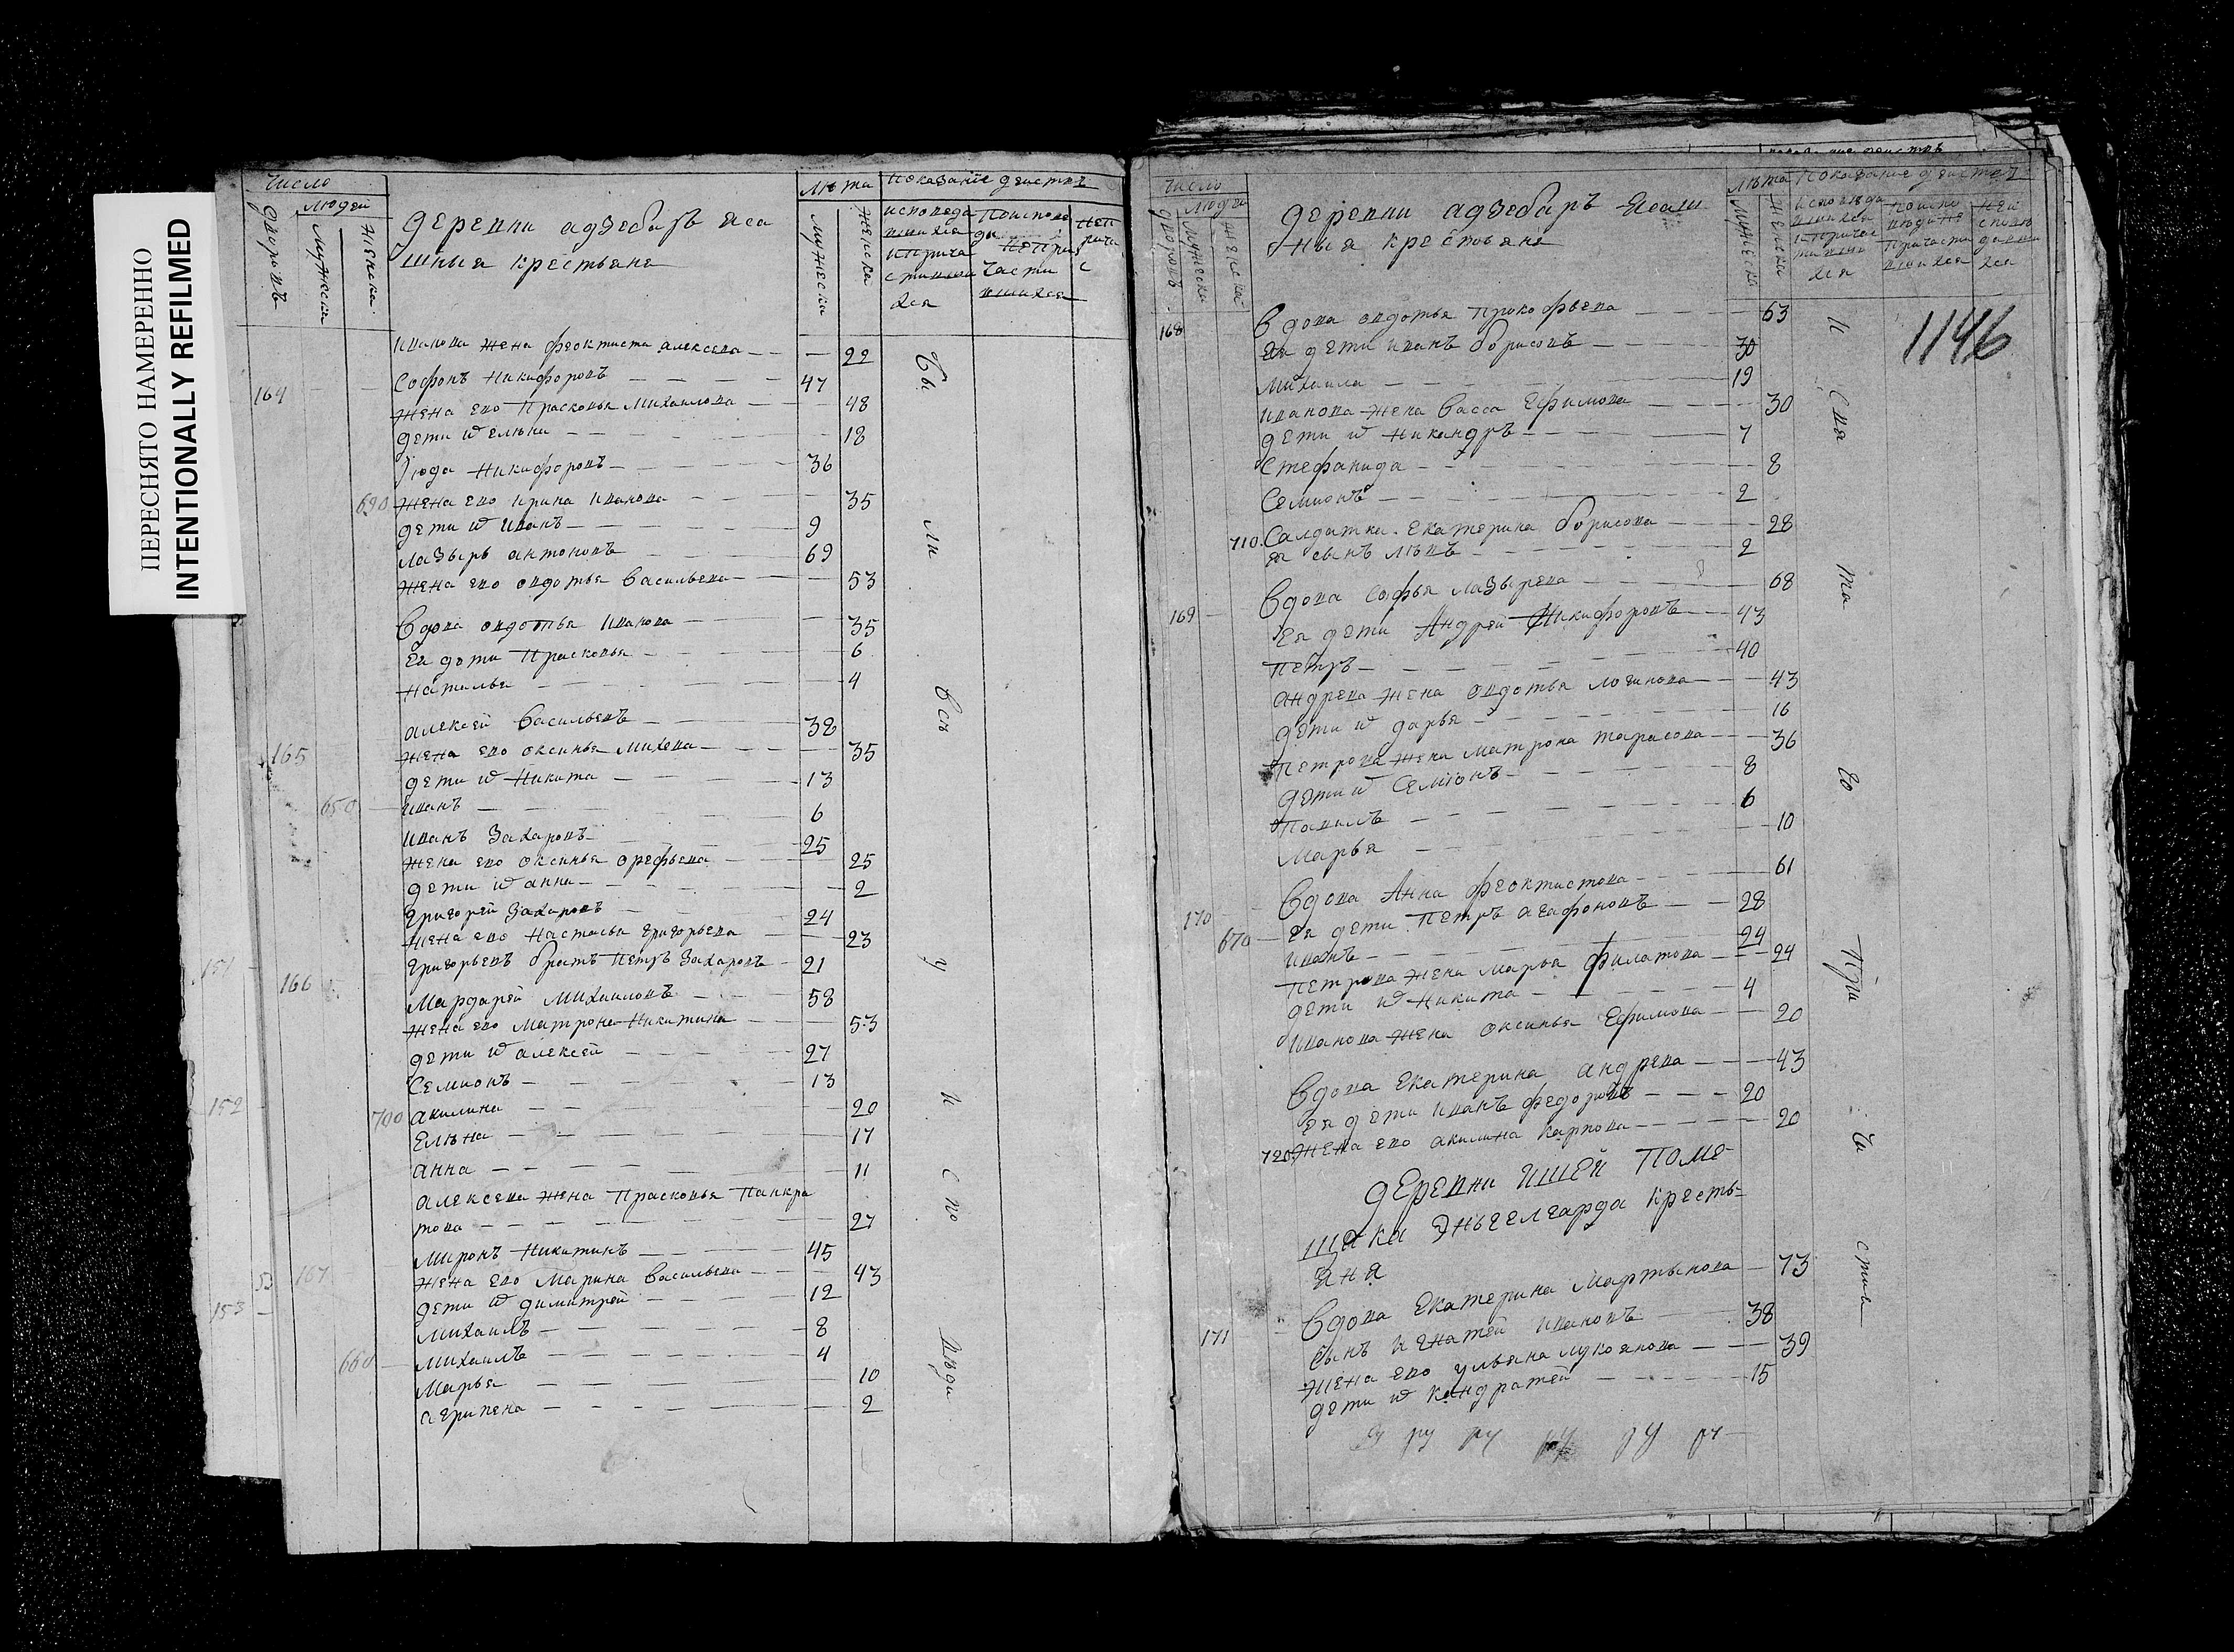 ПЕРЕСНЯТО НАМЕРЕННО
INTENTIONALLY REFILMED
Число
людей
дворовъ
мужеска
женска
деревни адзебаръ яса
шныя крестьяне
лѣта
мужеска
женска
показание действъ
исповеда
вшихся
и прича
стивши
хся
Поиспове
да непри
части
вшихся
неп
рича
с
Иванова жена феоктиста алексева — 22
164 Софонъ Никифоровъ — 47
жена ево Прасковья Михаилова — 48
дети ѿ елѣна — 18
Июда Никифоровъ — 36
690 жена ево ирина иванова — 35
дети ѿ иванъ — 9
лазырь антоновъ — 69
жена ево овдотья Васильева — 53
Вдова овдотья иванова — 35
Ея дети Прасковья — 6
Наталья — 4
алексей Васильевъ — 38
165 жена ево оксинья михева — 35
дети ѿ Никита — 13
650 иванъ — 6
иванъ Захаровъ — 25
жена ево оксинья орефьева — 25
дети ѿ анна — 2
григорей Захаровъ — 24
жена ево настасья григорьева — 23
151 григорьевъ братъ Петръ Захаровъ — 21
166 Мардарей михаиловъ — 58
жена ево Матрона Никитина — 53
дети ѿ алексей — 27
Семионъ — 13
152 700 акилина — 20
Елѣна — 17
анна — 11
алексева жена Прасковья Панкра
това — 27
167 миронъ Никитинъ — 45
53 жена ево Марина Васильева — 43
153 дети ѿ димитрей — 12
михаилъ — 8
660 михаилъ — 4
Марья — 10
агрипена — 2
Бы
ли
всѣ
у
и
спо
вѣди
Число
людей
дворовъ
мужеска
женскай
деревни адзебаръ ясаш
ныя крестьяне
лѣта
мужеска
женска
показание действъ
исповѣда
вшихся
и причас
тивши
хся
поиспо
вѣди не
причасти
вшихся
неи
сповѣ
давши
хся
1146
168 Вдова овдотья Прокофьева — 63
Ея дети иванъ борисовъ — 30
михаила — 19
иванова жена Васса Ефимова — 30
дети ѿ Никандръ — 7
Стефанида — 8
Семионъ — 2
710 Салдатка Екатерина борисова — 28
ея сынъ лѣвъ — 2
Вдова софья лазырева — 68
169 Ея дети Андрей Никифоровъ — 43
Петръ — 40
андрева жена овдотья логинова — 43
дети ѿ дарья — 16
Петрова жена матрона тарасова — 36
дети ѿ Семионъ — 8
Павилъ — 6
Марья — 10
Вдова Анна феоктистова — 61
170 Ея дети Петръ агафоновъ — 28
670 иванъ — 24
Петрова жена марья филатова — 24
дети ѿ Никита — 4
иванова жена оксинья Ефимова — 20
Вдова Екатерина андрева — 43
Ея дети иванъ федоровъ — 20
720 жена ево акилина карпова — 20
деревни ишей поме
щика Эньгелгарда кресть
яня
Вдова Екатерина Мартынова — 73
171 Сынъ игнатей ивановъ — 38
жена ево ульяна лукоянова — 39
дети ѿ кандратей — 15
ру ру ру
и
Свя
та
го
При
ча
стия